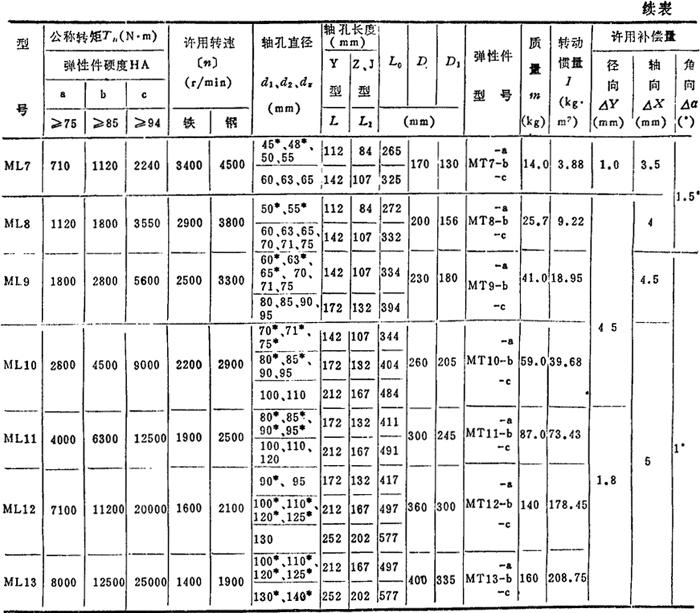 续表
型号 公称转矩Tn(N·m) 许用转速[n](r/min) 轴孔直径d1、d2、dz(mm) 轴孔长度(mm) L0 D D1 弹性件型号 质量m(kg) 转动惯量I(kg·m²) 许用补偿量
弹性件硬度HA Y型 Z、J型 径向ΔY(mm) 轴向ΔX(mm) 角向Δα(°)
a b c
≥75 ≥85 ≥94 铁 钢 L L1 (mm)
ML7 710 1120 2240 3400 4500 45*、48*、50、55 112 84 265 170 130 MT7-b 14.0 3.88 1.0 3.5 1.5°
-a
60、63、65 142 107 325
-c
ML8 1120 1800 3550 2900 3800 50*、55* 112 84 272 200 156 MT8-b 25.7 9.22 4
-a
60、63、65、70、71、75 142 107 332
-c
ML9 1800 2800 5600 2500 3300 60*、63*、65*、70、71、75 142 107 334 230 180 MT9-b 41.0 18.95 4 5 4.5
-a
80、85、90、95 172 132 394
-c
ML10 2800 4500 9000 2200 2900 70*、71*、75* 142 107 344 260 205 MT10-b 59.0 39.68
-a
80*、85*、90、95 172 132 404
-c
100、110 212 167 484
ML11 4000 6300 12500 1900 2500 80*、85*、90*、95* 172 132 411 300 245 MT11-b 87.0 73.43 1.8 5 1°
-a
100、110、120 212 167 491
-c
ML12 7100 11200 20000 1600 2100 90*、95 172 132 417 360 300 MT12-b 140 178.45
-a
100*、110*、120*、125* 212 167 497
-c
130 252 202 577
ML13 8000 12500 25000 1400 1900 100*、110*、120*、125* 212 167 497 400 335 MT13-b 160 208.75
-a
130*、140* 252 202 577
-c